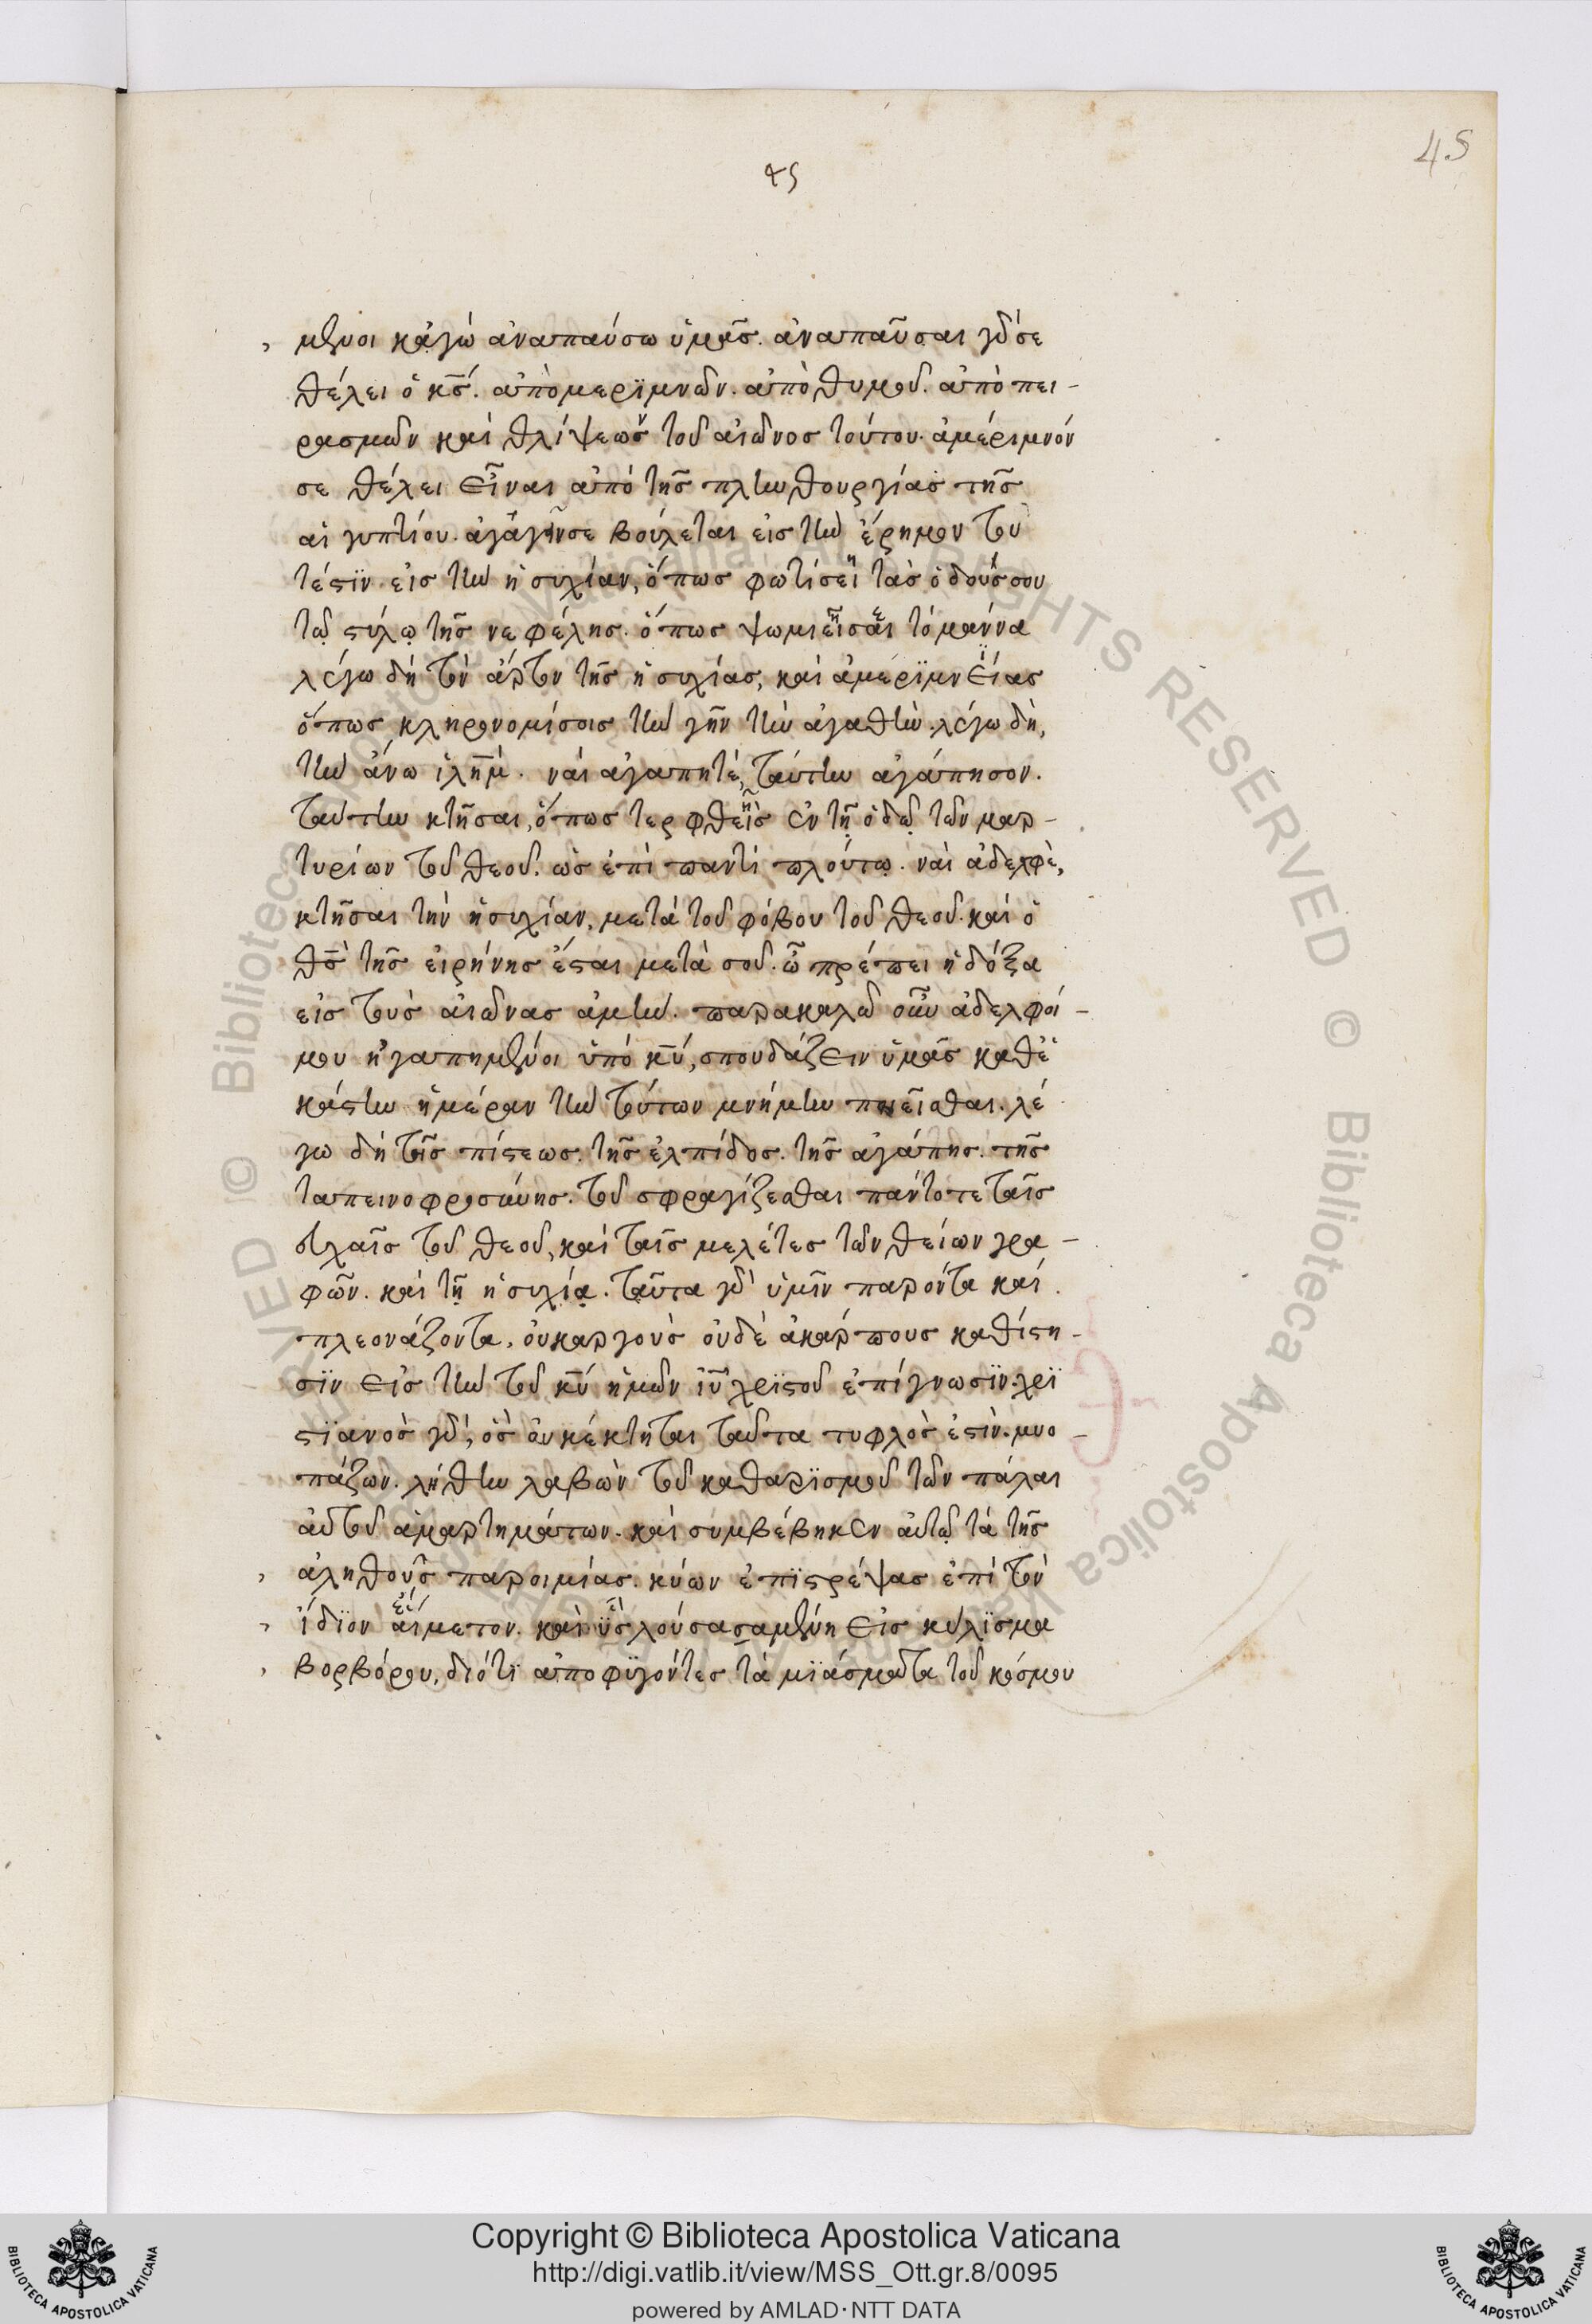 4.5
45
μένοι κἀγὼ ἀναπαύσω ὑμᾶς. ἀναπαῦσαι γάρ σε
θέλει ὁ κς̅. ἀπὸ μερϊμνῶν. ἀπὸ θυμοῦ. ἀπὸ πει-
ρασμῶν καὶ θλίψεως τοῦ αἰῶνος τούτου. ἀμέριμνόν
σε θέλει εἶναι ἀπὸ τῆς πλινθουργίας τῆς
αἰγυπτίου. ἀγάγην σε βούλεται εἰς τὴν ἔρημον του
τέστϊν εἰς τὴν ἡσυχίαν, ὅπως φωτίσει τὰς ὁδούς σου
τῷ στύλῳ τῆς νεφέλης. ὅπως ψωμιεῖ σαι τὸ μάννα
λέγω δὴ τὸν ἄρτον τῆς ἡσυχίας, καὶ ἀμερϊμνείας
ὅπως κληρονομίσοις τὴν γῆν τὴν ἀγαθὴν. λέγω δὴ,
τὴν ἄνω ἱλημ̅. ναὶ ἀγαπητέ, ταύτην ἀγάπησον.
ταύτην κτῆσαι, ὅπως τερφθεὶς ἐν τῇ ὁδῷ τῶν μαρ-
τυρίων τοῦ θεοῦ. ὡς ἐπὶ παντὶ πλούτῳ. ναὶ ἀδελφὲ,
κτῆσαι τὴν ἡσυχίαν, μετὰ τοῦ φόβου τοῦ θεοῦ. καὶ ὁ
θς̅ τῆς εἰρήνης ἔσται μετὰ σοῦ. ὧ πρέπει ἡ δόξα
εἰς τοὺς αἰῶνας ἀμήν. παρακαλῶ οὖν ἀδελφοί-
μου ἠγαπημένοι ὑπὸ κυ̅, σπουδάζειν ὑμᾶς καθἑ
κάστην ἡμέραν τὴν τούτων μνήμην ποιεῖσθαι. λέ
γω δὴ τῆς πίστεως. τῆς ἐλπίδος. τῆς ἀγάπης. τῆς
ταπεινοφροσύνης. τοῦ σφραγίζεσθαι πάντοτε ταῖς
εὐχαῖς τοῦ θεοῦ, καὶ ταῖς μελέτες τῶν θείων γρα-
φῶν. καὶ τῇ ἡσυχίᾳ. ταῦτα γὰρ ὑμῖν παρόντα καὶ
πλεονάζοντα, οὐκ αργοὺς οὐδὲ ἀκάρπους καθίστη-
σϊν εἰς τὴν τοῦ κυ̅ ἡμῶν ἰυ̅ χρϊστοῦ ἐπίγνωσϊν. χρϊ
στϊανὸς γὰρ, ὃς οὐ κέκτηται ταῦτα τυφλὸς ἐστὶν. μυο-
πάζων. λήθην λαβὼν τοῦ καθαρϊσμοῦ τῶν πάλαι
αὐτοῦ ἁμαρτημάτων. καὶ συμβέβηκεν αὐτῷ τὰ τῆς
ἀληθοῦς παροιμίας. κύων ἐπϊστρέψας ἐπὶ τὸν
ἴδϊον αἴμετον. καὶ ὗς λούσασαμένη εἰς κύλϊσμα
βορβόρου, διότϊ ἀποφϋγόντες τὰ μϊάσματα τοῦ κόσμου
Copyright © Biblioteca Apostolica Vaticana
http://digi.vatlib.it/view/MSS_Ott.gr.8/0095
powered by AMLAD·NTT DATA
BIBLIOTECA APOSTOLICA VATICANA
BIBLIOTECA APOSTOLICA VATICANA